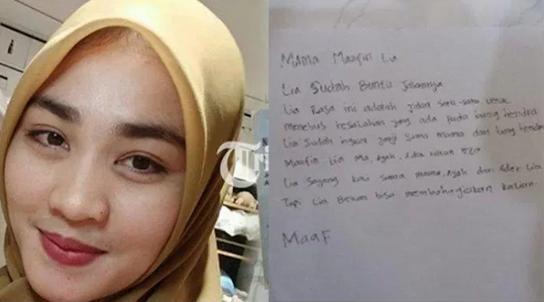 Mama Maafin Lia
Lia Sudah Buntu Jalannya
Lia Rasa ini adalah jalan satu-satu untuk
menebus kesalahan yang ada pada bang hendra
Lia Sudah ingkar janji sama mama dan bang hendra
Maafin Lia Ma, Ayah,
Lia Sayang kali sama mama, Ayah dan adek Lia
Tapi Lia Belum bisa membahagiakan kalian.
Maaf